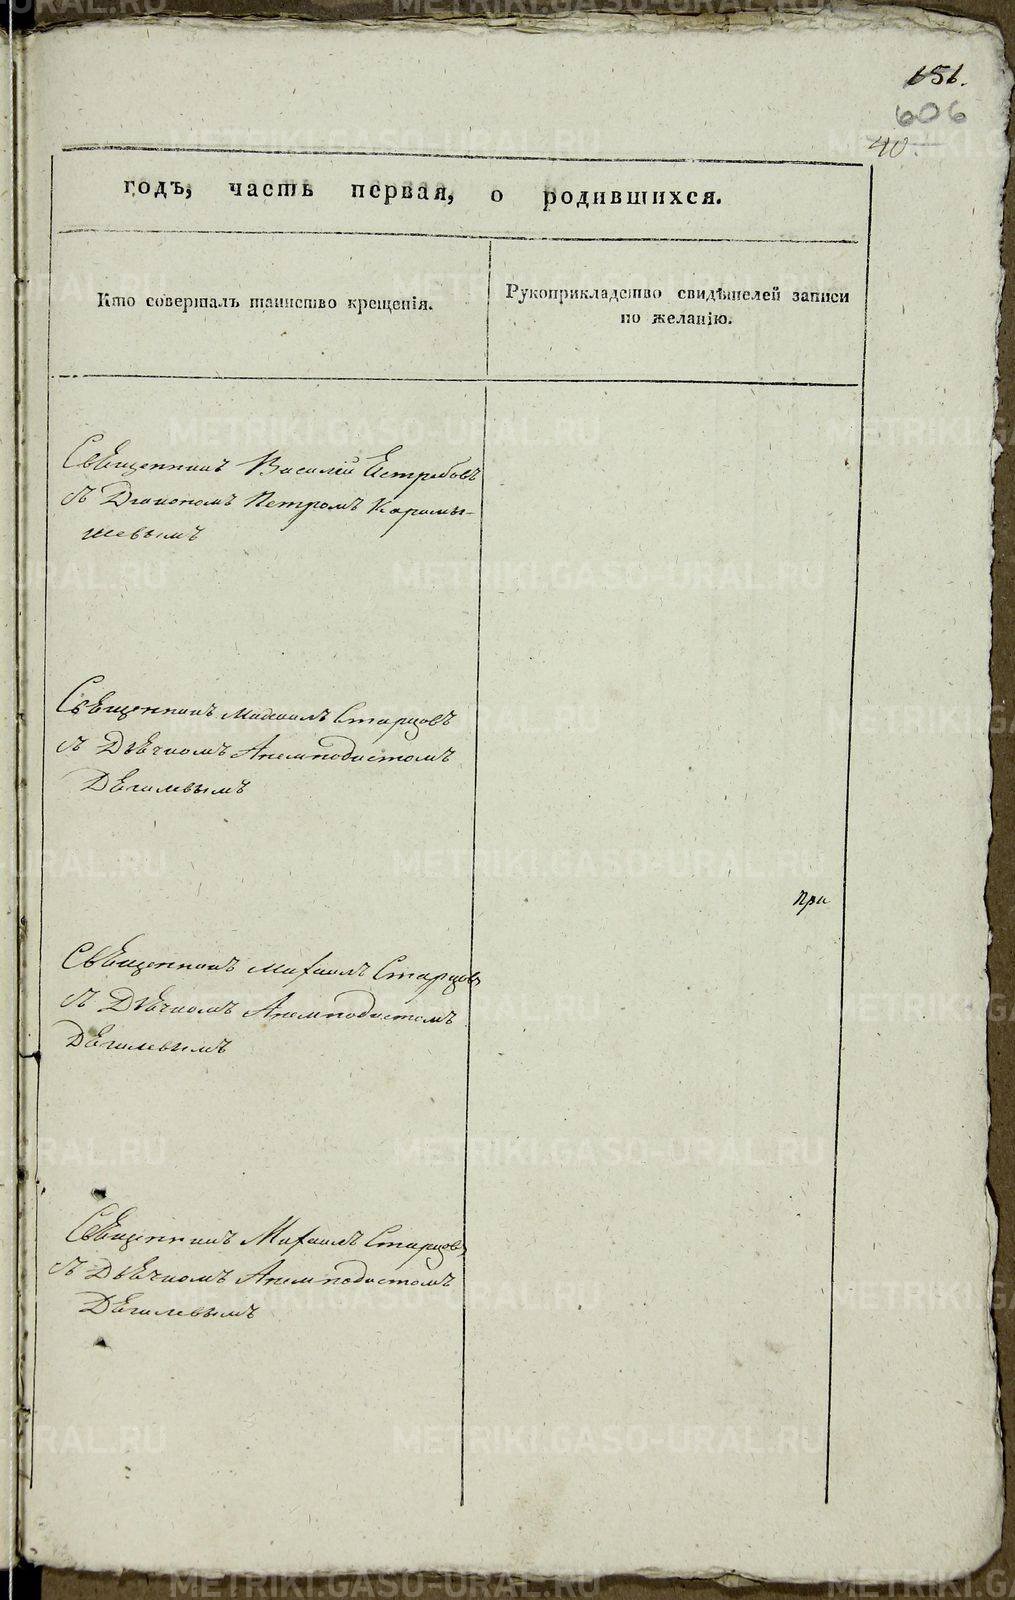 651.
606
40.
годъ, часть первая, о родившихся.
Кто совершалъ таинство крещенія.
Рукоприкладство свидѣтелей записи
по желанію.
Священникъ Василій Ястребовъ
съ Діакономъ Петромъ Карамы-
шевымъ
Священникъ Михаилъ Старцовъ
съ Дьячкомъ Анемподистомъ
Дягилевымъ
при
Священникъ Михаилъ Старцовъ
съ Дьячкомъ Анемподистомъ
Дягилевымъ
Священникъ Михаилъ Старцовъ
съ Дьячкомъ Анемподистомъ
Дягилевымъ
METRIKI.GASO-URAL.RU